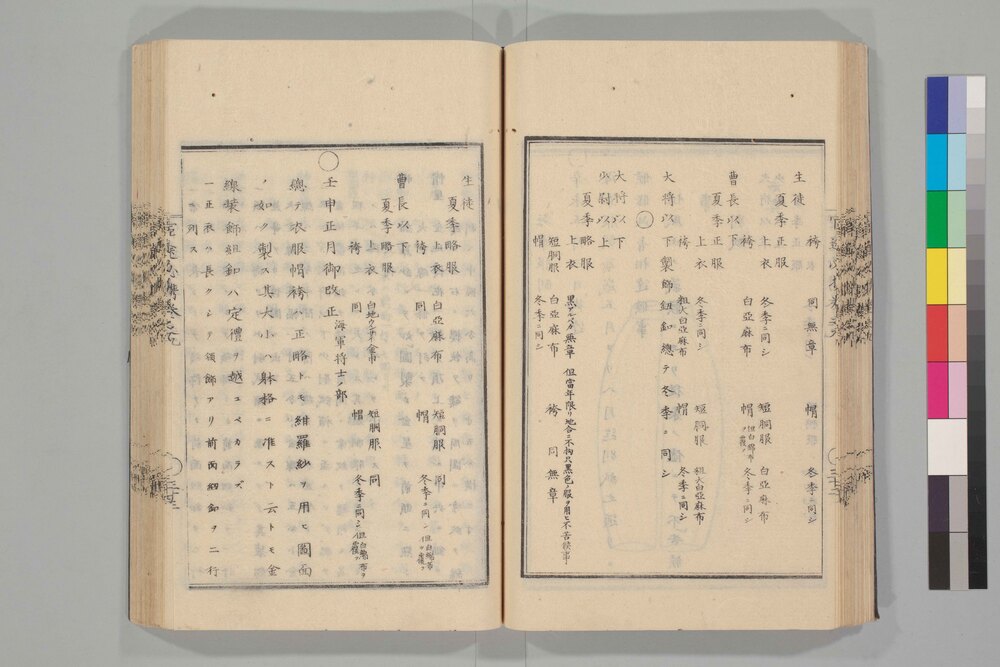 袴 同無章 帽 冬季ニ同シ
生徒
夏季正服
上衣 冬季ニ同シ 短胴服 白亞麻布
袴 白亞麻布 帽 冬季ニ同シ 但白綿布ヲ覆フ
曹長以下
夏季正服
上衣 冬季ニ同シ 短胴服 粗大白亞麻布
袴 粗大白亞麻布 帽 冬季ニ同シ
大將以下製飾紐釦總テ冬季ニ同シ
大將以下
少尉以上
夏季略服
上衣 黒アルペカ無章 但當年限リ地合ニ不拘只黒色ノ服ヲ用ヒ不苦候事
短胴服 白亞麻布 袴 同無章
帽 冬季ニ同シ
生徒
夏季略服
上衣 白亞麻布 短胴服 同
袴 同 帽 冬季ニ同シ 但白綿布ヲ覆フ
曹長以下
夏季略服
上衣 短胴服 同
袴 同 帽 冬季ニ同シ 但白綿布ヲ覆フ
壬申正月御改正 海軍將士ノ部
總テ衣服帽袴ハ正略トモ紺羅紗ヲ用ヒ圖面
ノ如ク製ス其大小ハ躰格ニ准スト云トモ金
線裝飾組釦ハ定禮ヲ越ユベカラズ
一正衣ハ長クシテ領飾アリ前面紐釦ヲ二行
ニ列ス